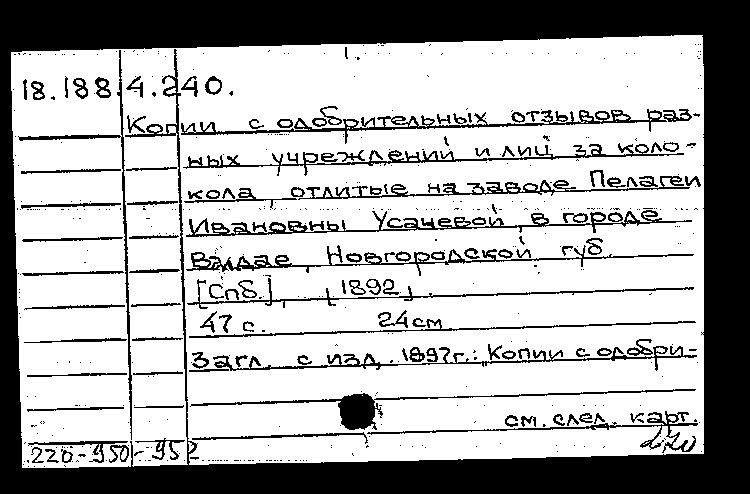 1.
18.188.4.240.
Копии с одобрительных отзывов раз-
ных учреждений и лиц за коло-
кола, отлитые на заводе Пелагеи
Ивановны Усачевой, в городе
Валдае, Новгородской губ.
[Спб.], [1892].
47 с. 24см
Загл. с изд. 1897г.: Копии с одобри-
см. след. карт.
220-950-952